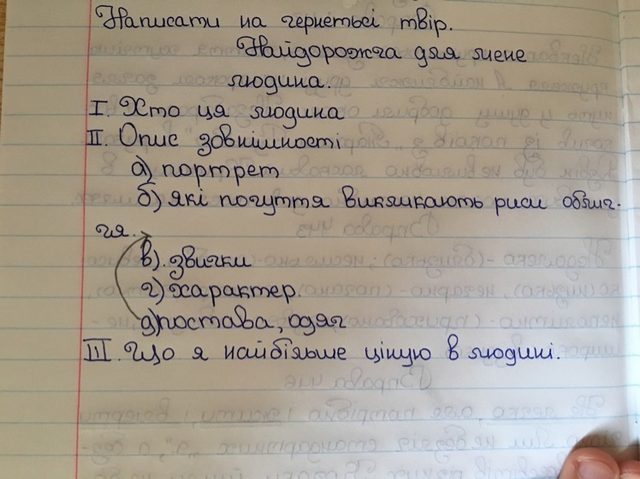 Написати на чернетьсі твір.
Найдорожча для мене
людина.
I. Хто ця людина
II. Опис зовнішності
а) портрет
б) які почуття викликають риси облич-
чя.
в). звички
г) характер.
д) постава, одяг
III. Що я найбільше ціную в людині.